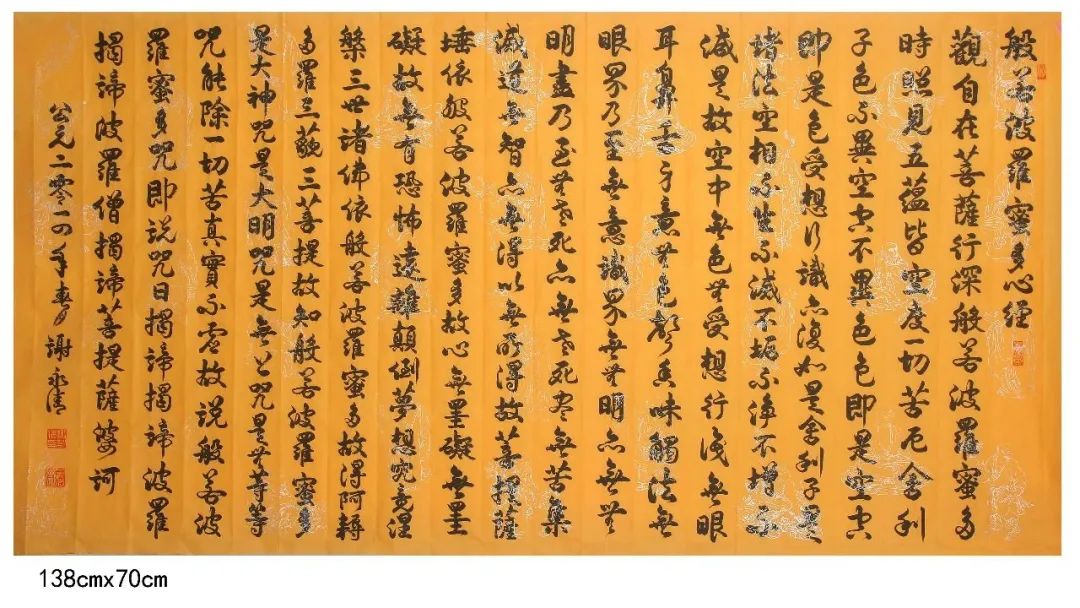 般若波羅蜜多心經
觀自在菩薩行深般若波羅蜜多
時照見五蘊皆空度一切苦厄舍利
子色不異空空不異色色即是空空
即是色受想行識亦復如是舍利子是
諸法空相不生不滅不垢不淨不增不
減是故空中無色無受想行識無眼
耳鼻舌身意無色聲香味觸法無
眼界乃至無意識界無無明亦無無
明盡乃至無老死亦無老死盡無苦集
滅道無智亦無得以無所得故菩提薩
埵依般若波羅蜜多故心無罣礙無罣
礙故無有恐怖遠離顛倒夢想究竟涅
槃三世諸佛依般若波羅蜜多故得阿耨
多羅三藐三菩提故知般若波羅蜜多
是大神咒是大明咒是無上咒是無等等
咒能除一切苦真實不虛故說般若波
羅蜜多咒即說咒曰揭諦揭諦波羅
揭諦波羅僧揭諦菩提薩婆訶
公元二零一四年春月 謝永清
138cmx70cm